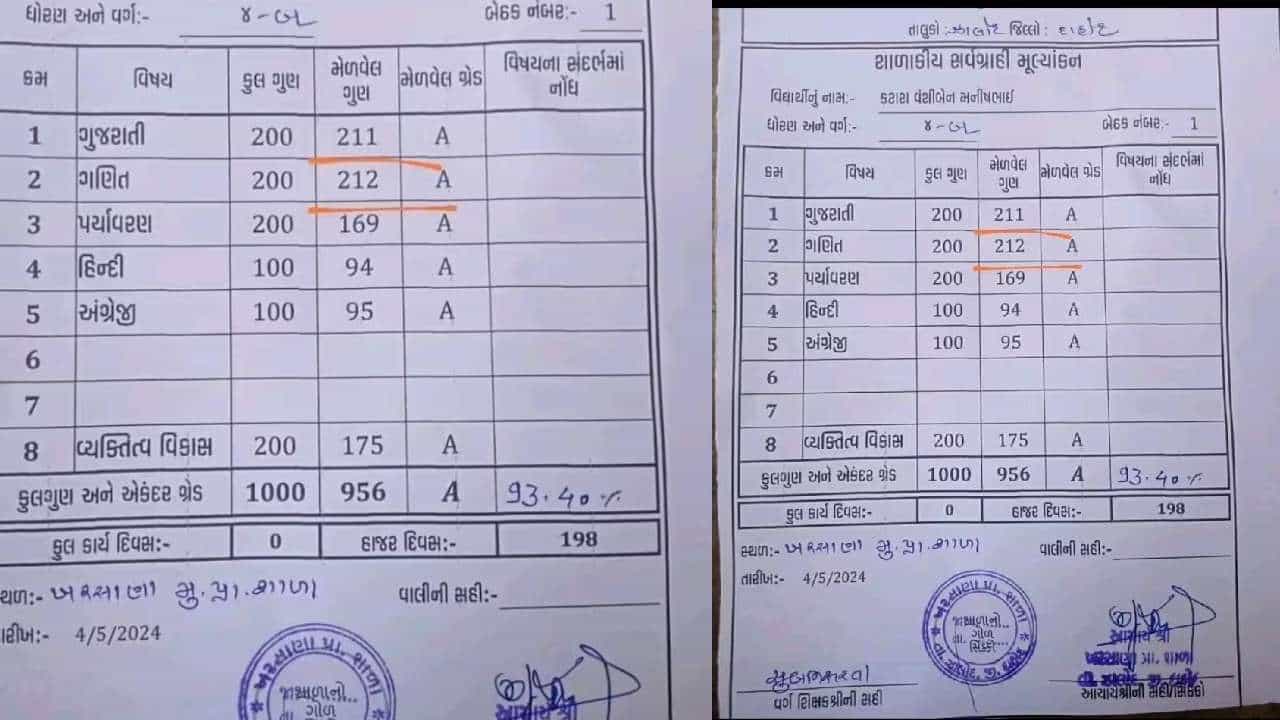 ધોરણ અને વર્ગ:- ૪-બ બેઠક નંબર:- 1
ક્રમ વિષય કુલ ગુણ મેળવેલ ગુણ મેળવેલ ગ્રેડ વિષયના સંદર્ભમાં નોંધ
1 ગુજરાતી 200 211 A
2 ગણિત 200 212 A
3 પર્યાવરણ 200 169 A
4 હિન્દી 100 94 A
5 અંગ્રેજી 100 95 A
6
7
8 વ્યક્તિત્વ વિકાસ 200 175 A
કુલગુણ અને એકંદર ગ્રેડ 1000 956 A 93.40%
કુલ કાર્ય દિવસ:- 0 હાજર દિવસ:- 198
સ્થળ:- ખરસાણા મુ.પ્રા.શાળા વાલીની સહી:-
તારીખ:- 4/5/2024
તાલુકો: ઝાલોદ જિલ્લો: દાહોદ
શાળાકીય સર્વગ્રાહી મૂલ્યાંકન
વિદ્યાર્થીનું નામ:- કટારા વંશીબેન મનીષભાઈ
ધોરણ અને વર્ગ:- ૪-બ બેઠક નંબર:- 1
ક્રમ વિષય કુલ ગુણ મેળવેલ ગુણ મેળવેલ ગ્રેડ વિષયના સંદર્ભમાં નોંધ
1 ગુજરાતી 200 211 A
2 ગણિત 200 212 A
3 પર્યાવરણ 200 169 A
4 હિન્દી 100 94 A
5 અંગ્રેજી 100 95 A
6
7
8 વ્યક્તિત્વ વિકાસ 200 175 A
કુલગુણ અને એકંદર ગ્રેડ 1000 956 A 93.40%
કુલ કાર્ય દિવસ:- 0 હાજર દિવસ:- 198
સ્થળ:- ખરસાણા મુ.પ્રા.શાળા વાલીની સહી:-
તારીખ:- 4/5/2024
શાળાનો..
ગોળ
સિક્કો...
આચાર્ય શ્રી
ખરસાણા પ્રા. શાળા
વર્ગ શિક્ષકશ્રીની સહી આચાર્યશ્રીની સહી/સિક્કો